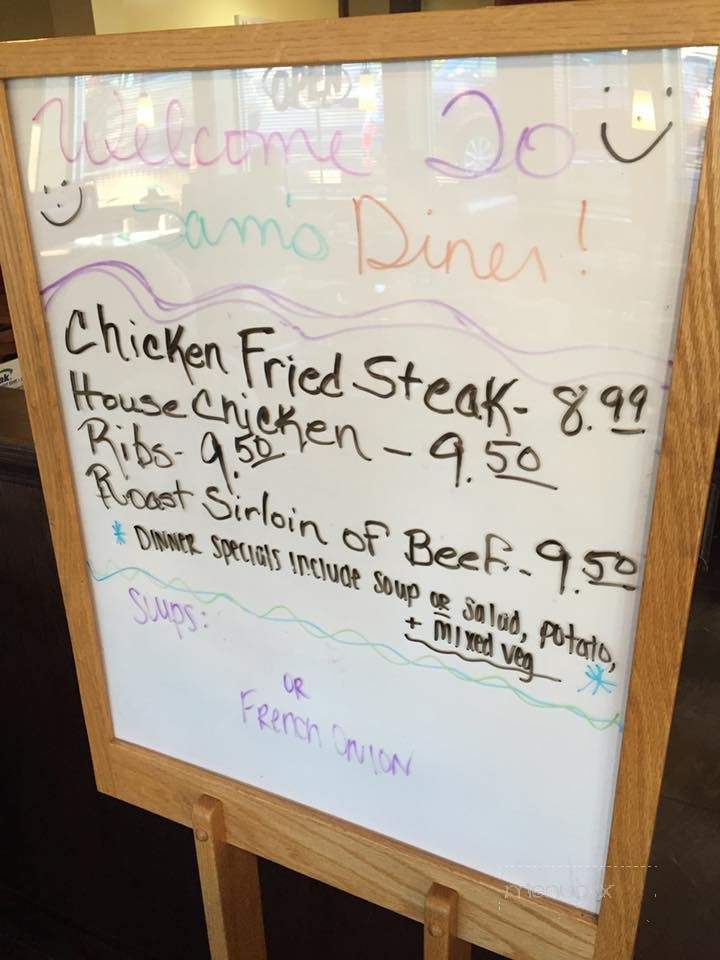 OPEN
Welcome To
Sam's Diner!
Chicken Fried Steak - 8.99
House Chicken - 9.50
Ribs - 9.50
Roast Sirloin of Beef - 9.50
* DINNER Specials Include Soup OR Salad, Potato,
+ Mixed Veg *
Soups:
OR
French Onion
menupix